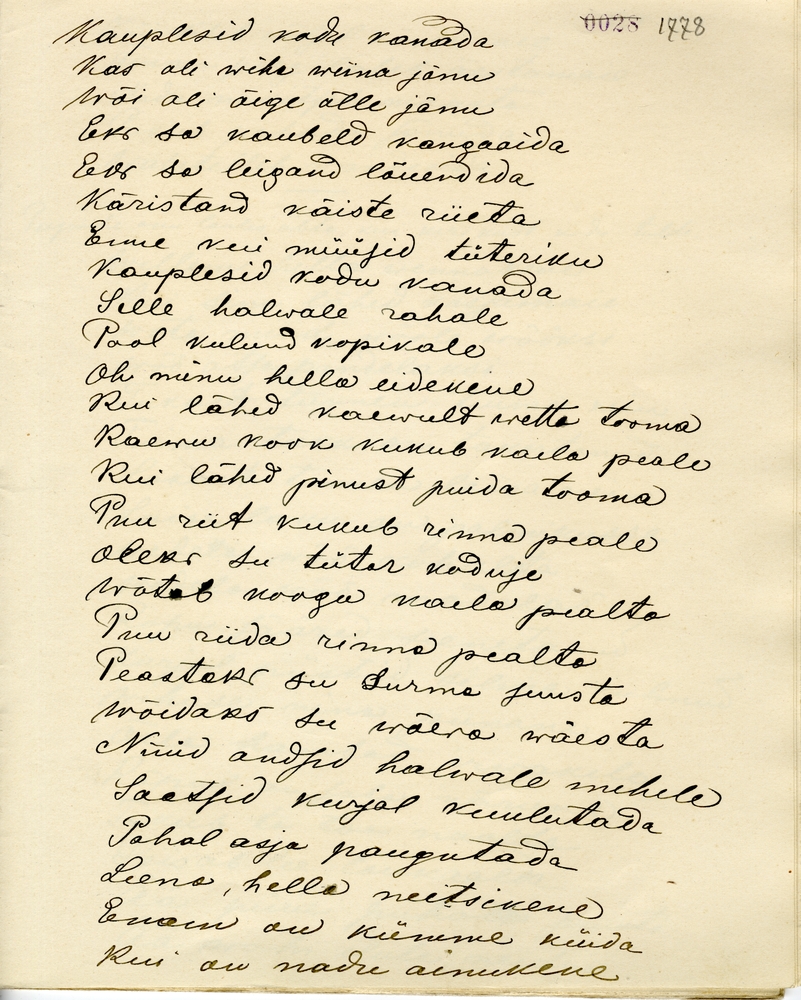 0028 1778
Kauplesid kodu kanada
Kas oli wihe wiina jänu
Wõi oli õige õlle jänu
Eks sa kaubeld kangaaida
Eks sa leigand lõuendida
Käristand käiste riieta
Enne kui müüsid tüteriku
Kauplesid kodu kanada
Selle halwale rahale
Pool kulund kopikale
Oh minu hella eidekene
Kui lähed kaewult wetta tooma
Kaewu kook kukub kaela peale
Kui lähed pinust puida tooma
Puu riit kukub rinna peale
Oleks su tütar koduje
Wõtab koogu kaela pealta
Puu riida rinna pealta
Peastaks su surma suusta
Wõidaks su wõera wäesta
Nüüd andsid halwale mehele
Saatsid kurjal kuulutada
Pahal asja paugutada
Leena, hella neitsikene
Enam on kümme küida
Kui on nadu ainukene